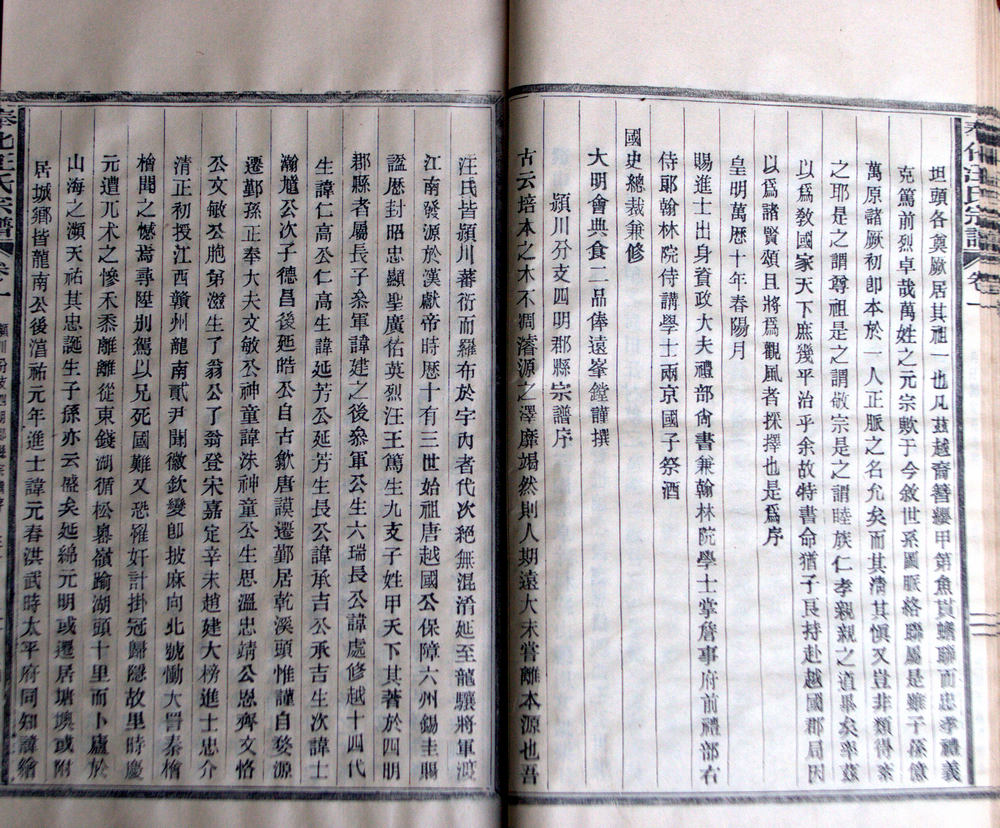 奉化汪氏宗譜 卷一
坦頭各奠厥居其祖一也凡玆越裔簪纓甲第魚貫蟾聯而忠孝禮義
克篤前烈卓哉萬姓之元宗歟于今敘世系圖脈絡聯屬是雖子孫億
萬原諸厥初卽本於一人正脈之名允矣而其清其愼又豈非類得來
之耶是之謂尊祖是之謂敬宗是之謂睦族仁孝親親之道畢矣率玆
以爲敎國家天下庶幾平治乎余故特書命猶子長持赴越國郡局因
以爲諸賢頌且將爲觀風者採擇也是爲序
皇明萬歷十年春陽月
賜進士出身資政大夫禮部尙書兼翰林院學士掌詹事府前禮部右
侍郞翰林院侍講學士兩京國子祭酒
國史總裁兼修
大明會典食二品俸遠峯鏜謹撰
潁川分支四明郡縣宗譜序
古云培本之木不凋濬源之澤靡竭然則人期遠大未嘗離本源也吾
汪氏皆潁川蕃衍而羅布於宇內者代次絕無混淆延至龍驤將軍渡
江南發源於漢獻帝時歷十有三世始祖唐越國公保障六州錫圭賜
諡歷封昭忠顯聖廣佑英烈汪王篤生九支子姓甲天下其著於四明
郡縣者屬長子叅軍諱建之後叅軍公生六瑞長公諱處修越十四代
生諱仁高公仁高生諱延芳公延芳生長公諱承吉公承吉生次諱士
瀚馗公次子德昌後延皓公自古歙唐謨遷鄞居乾溪頭惟謹自婺源
遷鄞孫正奉大夫文敏公神童諱洙神童公生思溫忠靖公恩齊文恪
公文敏公胞第滋生了翁公了翁登宋嘉定辛未趙建大榜進士忠介
清正初授江西贛州龍南貳尹聞徽欽變卽披麻向北號慟大詈秦檜
檜聞之憾焉尋陞別駕以兄死國難又恐罹奸計掛冠歸隱故里時慶
元遭兀术之慘禾黍離離從東錢湖循松嶴嶺踰湖頭十里而卜廬於
山海之瀕天祐其忠誕生子孫亦云盛矣延綿元明或遷居塘墺或附
居城鄉皆龍南公後湻祐元年進士諱元春洪武時太平府同知諱繪
奉化汪氏宗譜 卷一 潁川分支四明郡縣宗譜序